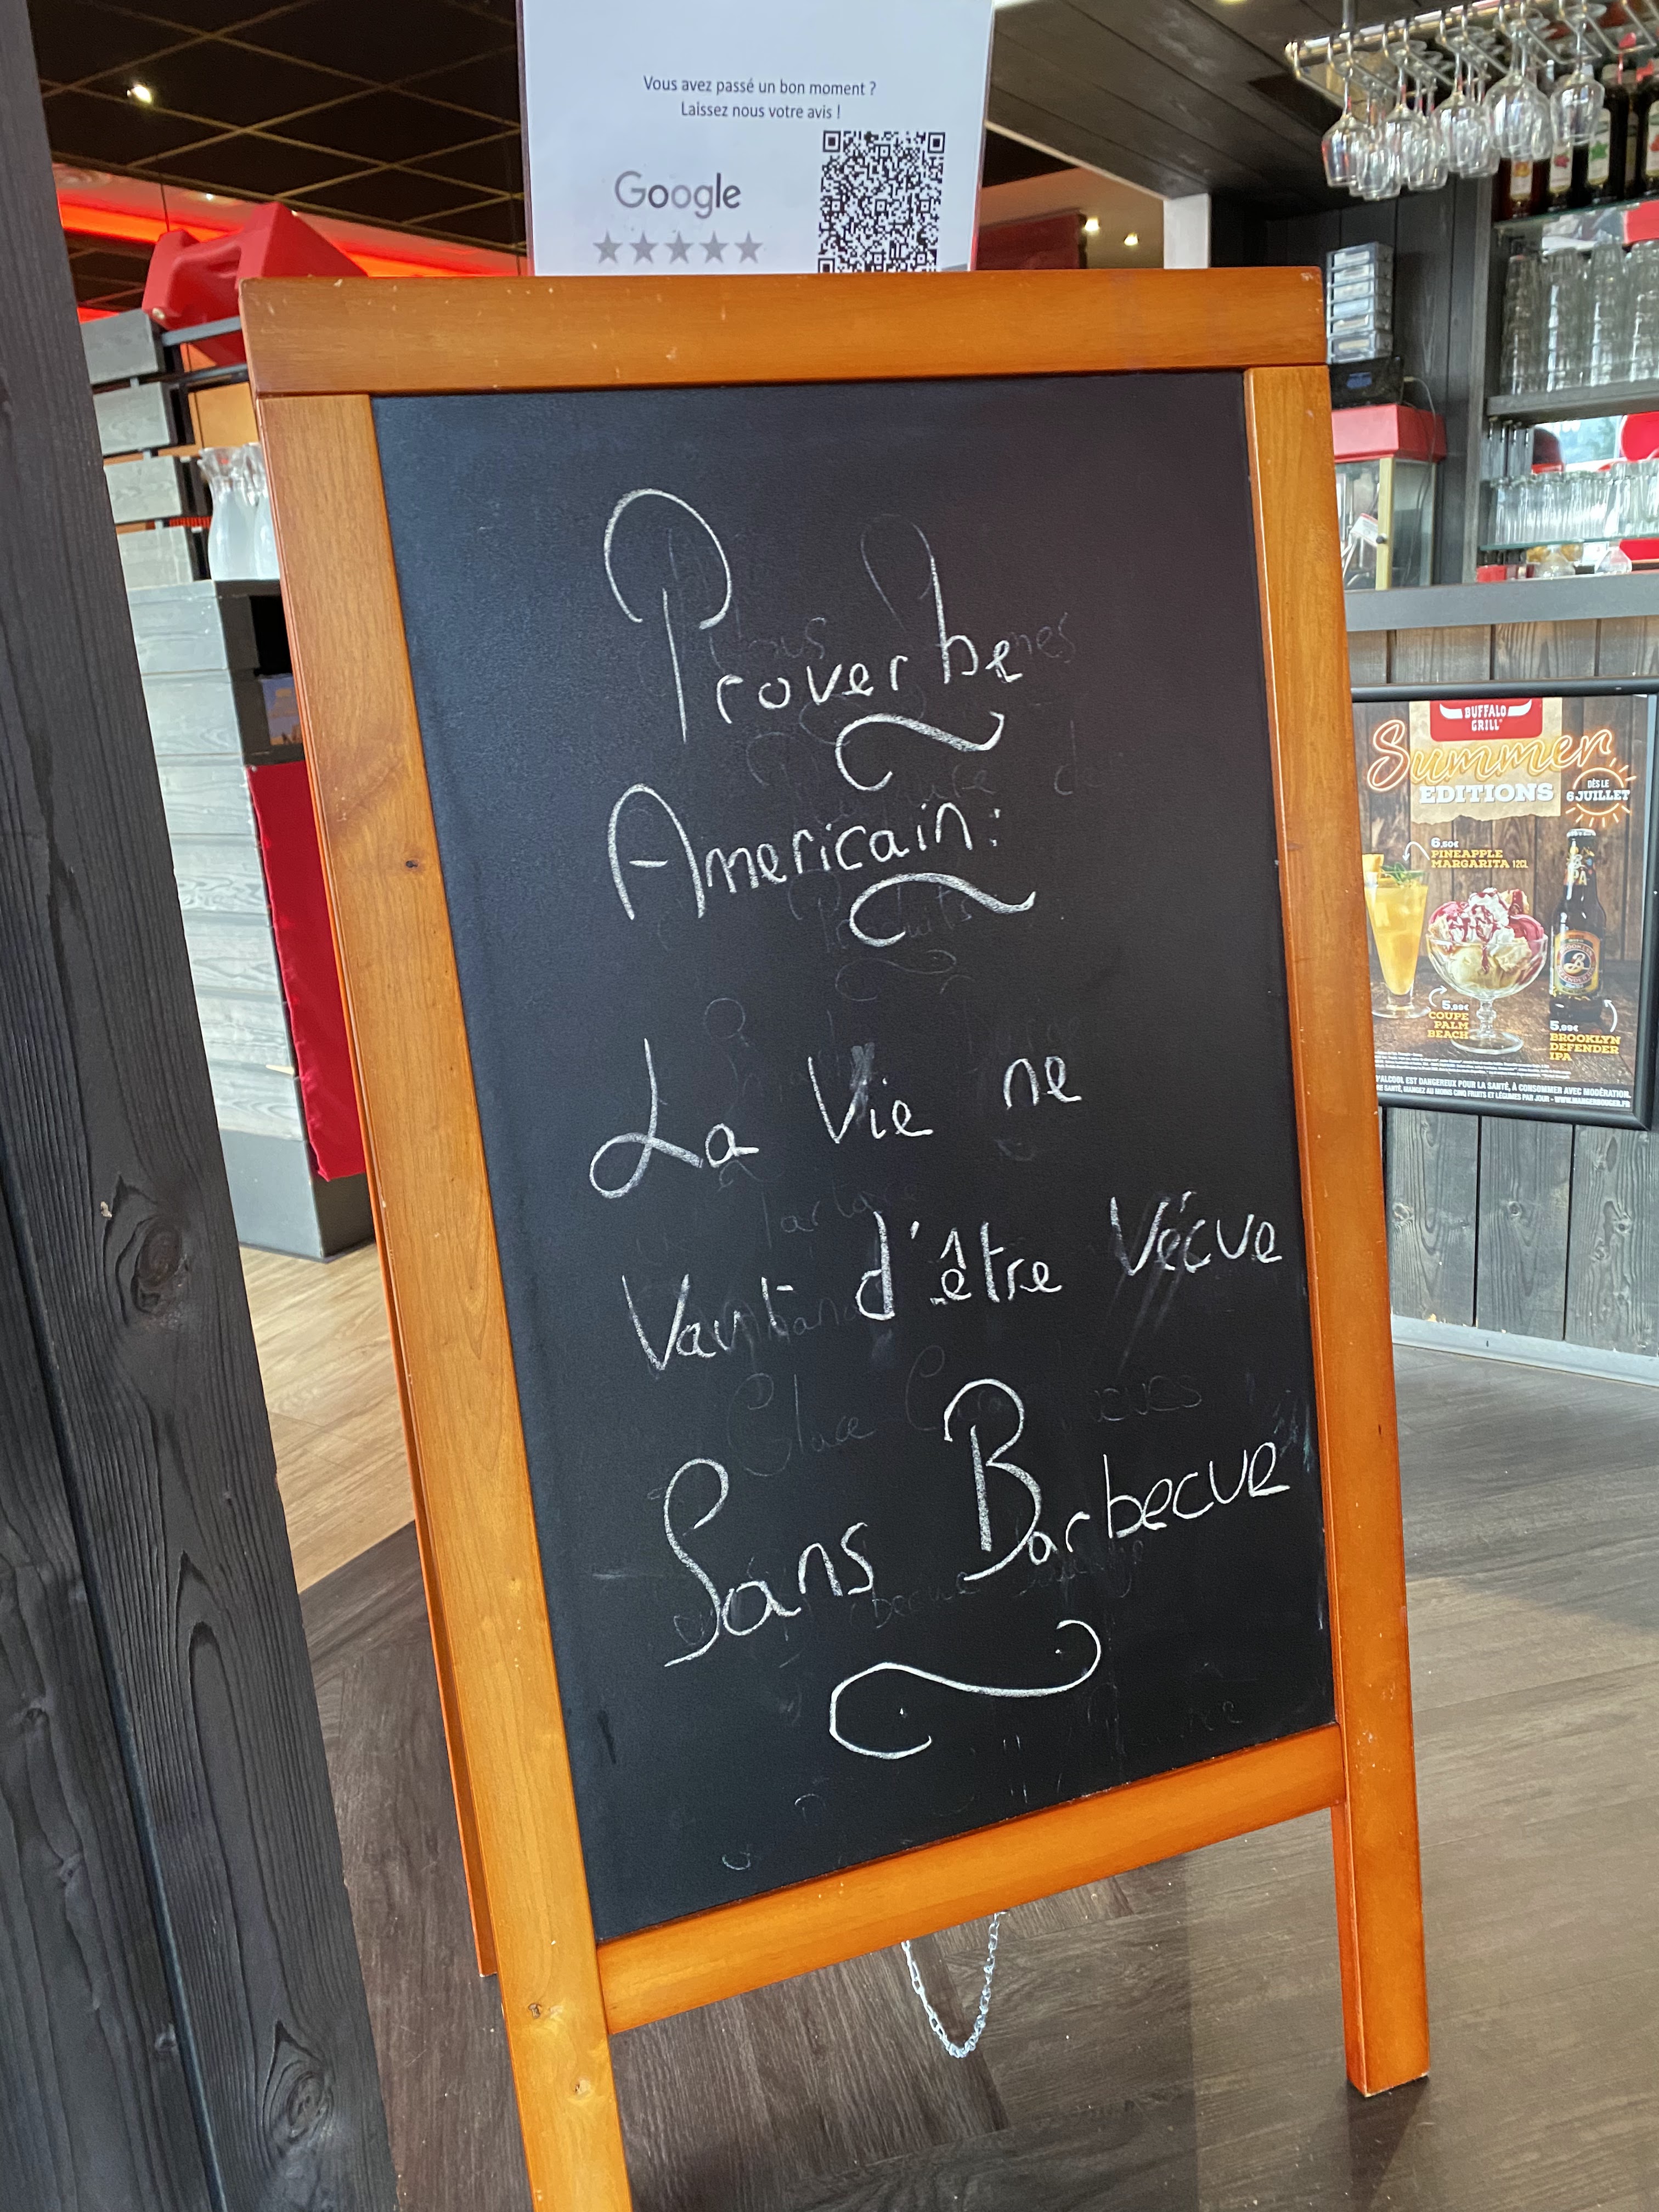 Vous avez passé un bon moment ?
Laissez nous votre avis !
Google
Proverbe
Americain:
La Vie ne
Vaut d'être Vécue
Sans Barbecue
BUFFALO
GRILL
Summer
EDITIONS
DÈS LE
6 JUILLET
6,50€
PINEAPPLE
MARGARITA 12CL
IPA
5,99€
COUPE
PALM
BEACH
5,99€
BROOKLYN
DEFENDER
IPA
L'ALCOOL EST DANGEREUX POUR LA SANTÉ, À CONSOMMER AVEC MODÉRATION.
SANTÉ, MANGEZ AU MOINS CINQ FRUITS ET LÉGUMES PAR JOUR - WWW.MANGERBOUGER.FR